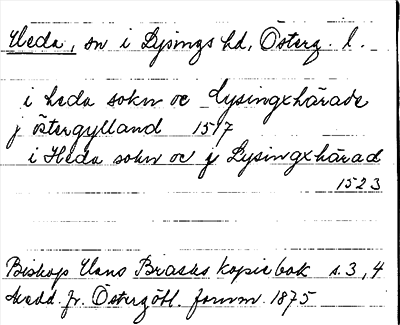 Heda, sn i Lysings hd, Österg. l.
i heda sokn oc lysingxhärade
j östergylland 1517
i Heda sokn oc j Lysingxhärad
1523
Biskop Hans Brasks kopiebok s. 3, 4
Medd. fr. Östergötl. fornm. 1875